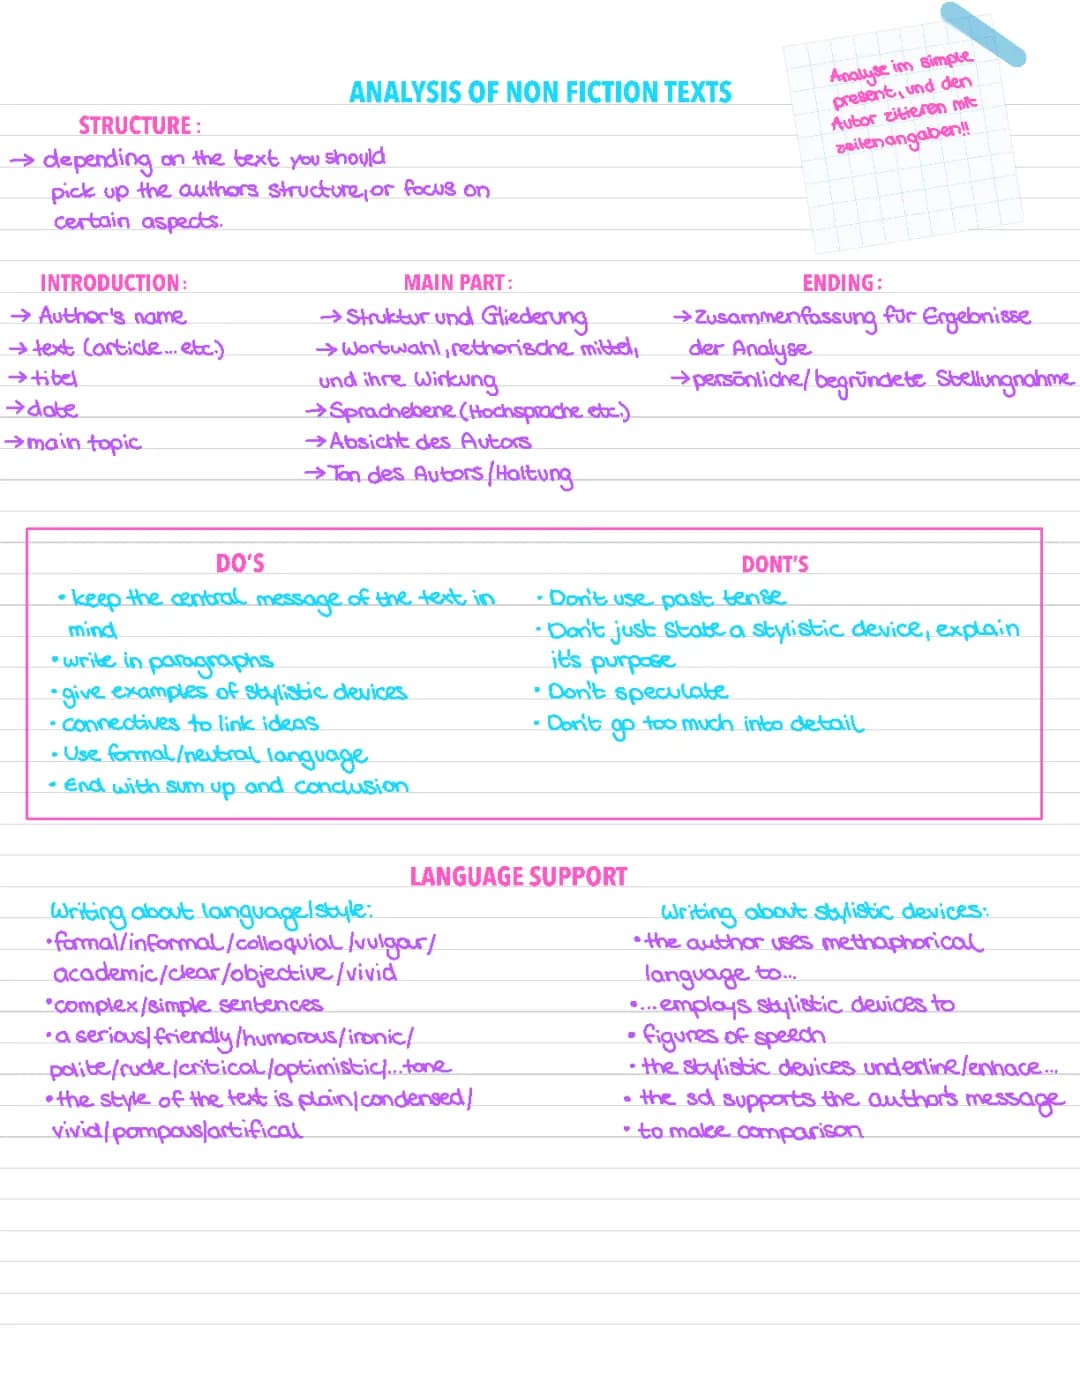 ANALYSIS OF NON FICTION TEXTS
Analyse im simple
present, und den
Autor zitieren mit
zeilenangaben!!
STRUCTURE:
→ depending on the text you should
pick up the authors structure, or focus on
certain aspects.
INTRODUCTION:
→ Author's name
→ text (article... etc.)
→ titel
→ date
→ main topic
MAIN PART:
→ Struktur und Gliederung
→ Wortwahl, rethorische mittel,
und ihre Wirkung
→ Sprachebene (Hochsprache etc.)
→ Absicht des Autors
→ Ton des Autors/Haltung
ENDING:
→ Zusammenfassung für Ergebnisse
der Analyse
→ persönliche/begründete Stellungnahme
DO'S
• keep the central message of the text in
mind
• write in paragraphs
• give examples of stylistic devices
• connectives to link ideas
• Use formal/neutral language
• End with sum up and conclusion
DONT'S
• Don't use past tense
• Don't just state a stylistic device, explain
it's purpose
• Don't speculate
• Don't go too much into detail
LANGUAGE SUPPORT
Writing about language/style:
• formal/informal/colloquial/vulgar/
academic/clear/objective/vivid
• complex/simple sentences
• a serious/friendly/humorous/ironic/
polite/rude/critical/optimistic/...tone
• the style of the text is plain/condensed/
vivid/pompous/artifical
Writing about stylistic devices:
• the author uses methaphorical
language to...
• ...employs stylistic devices to
• figures of speech
• the stylistic devices underline/enhace...
• the sd supports the author's message
• to make comparison